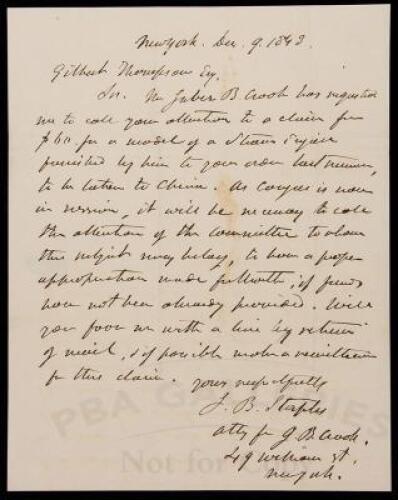 New York. Dec. 9. 1843.
Gilbert Thompson Esq.
Sir. Mr Jabez B. Crook has requested
me to call your attention to a claim for
for a model of a Steam Engine
furnished by him to your order last summer,
to be taken to China. As Congress is now
in session, it will be necessary to call
the attention of the committee to whom
this subject may belong, to have a proper
appropriation made forthwith, if funds
have not been already provided. Will
you favor me with a line by return
of mail, & if possible make a remittance
for this claim.
yours respectfully
J. B. Staples
atty for J B. Crook.
49 William St.
New York.
PBA GALLERIES
Not for